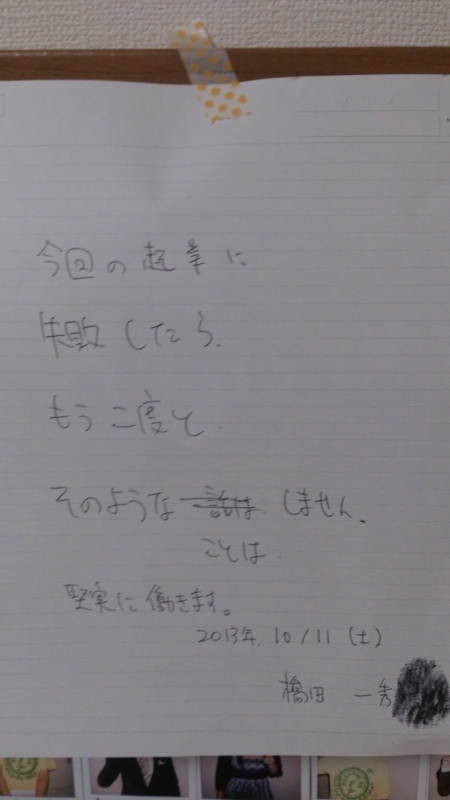 今回の起業に
失敗したら、
もう二度と
そのような話は しません。
ことは
堅実に働きます。
2013年. 10/11 (土)
橋田 一秀